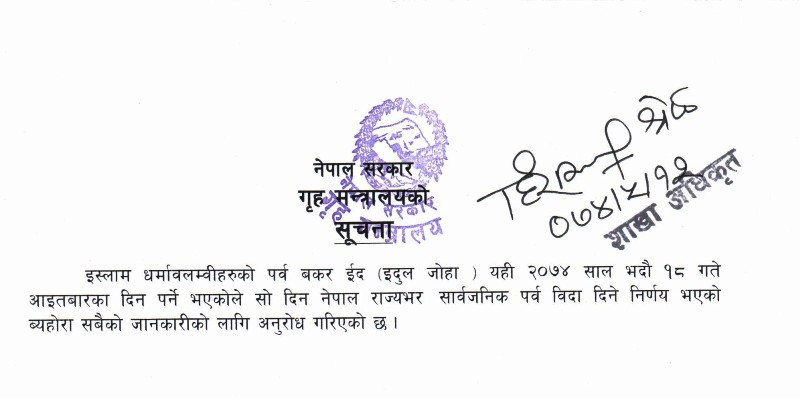 नेपाल सरकार
गृह मन्त्रालयको
सूचना
नेपाल सरकार
गृह मन्त्रालय
श्रेष्ठ
शाखा अधिकृत
इस्लाम धर्मावलम्वीहरुको पर्व बकर ईद (इदुल जोहा ) यही २०७४ साल भदौ १८ गते
आइतबारका दिन पर्ने भएकोले सो दिन नेपाल राज्यभर सार्वजनिक पर्व विदा दिने निर्णय भएको
ब्यहोरा सबैको जानकारीको लागि अनुरोध गरिएको छ ।